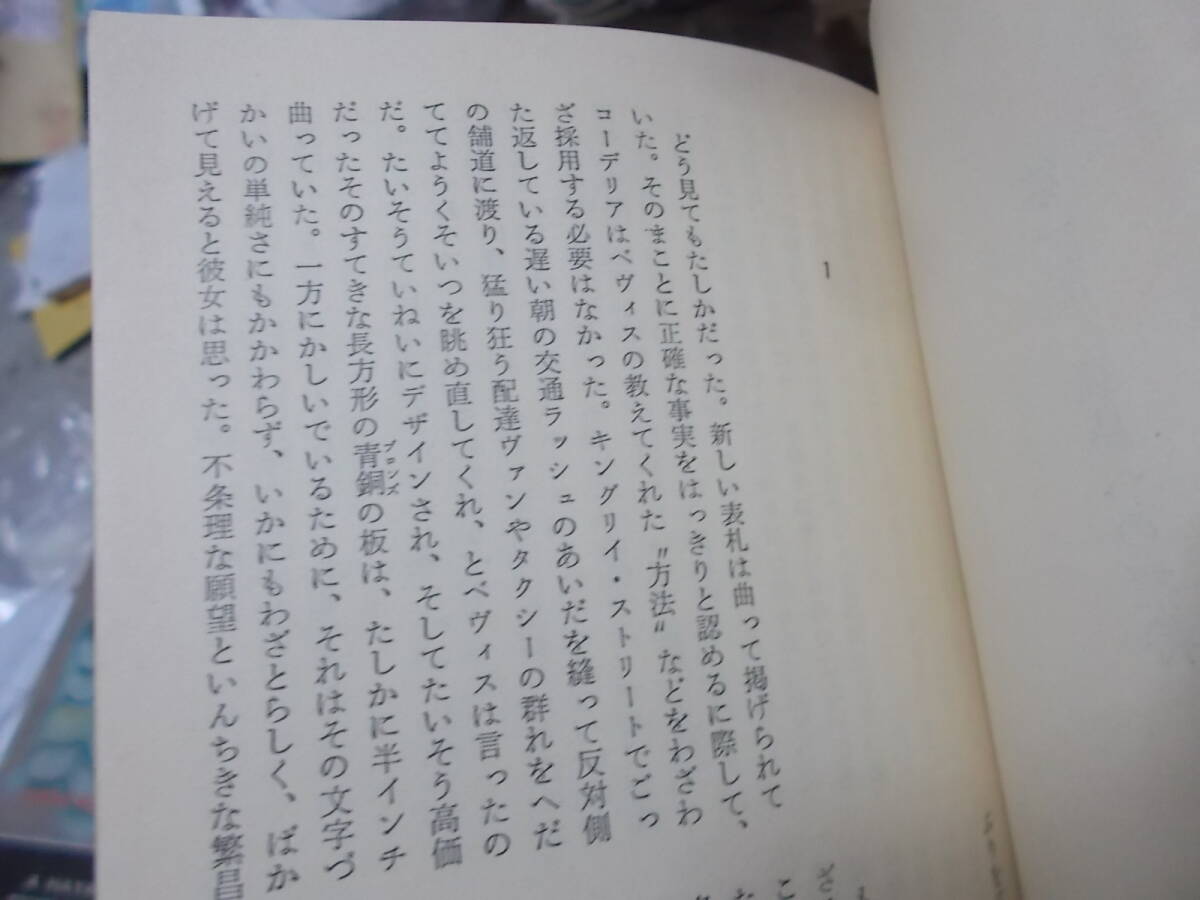 1
どう見てもたしかだった。新しい表札は曲って掲げられて
いた。そのまことに正確な事実をはっきりと認めるに際して、
コーデリアはベヴィスの教えてくれた〝方法〟などをわざわ
ざ採用する必要はなかった。キングリイ・ストリートでごっ
た返している遅い朝の交通ラッシュのあいだを縫って反対側
の舗道に渡り、猛り狂う配達ヴァンやタクシーの群れをへだ
ててようくそいつを眺め直してくれ、とベヴィスは言ったの
だ。たいそうていねいにデザインされ、そしてたいそう高価
だったそのすてきな長方形の青銅の板は、たしかに半インチ
ブロンズ
曲っていた。一方にかしいでいるために、それはその文字づ
かいの単純さにもかかわらず、いかにもわざとらしく、ばか
げて見えると彼女は思った。不条理な願望といんちきな繁昌